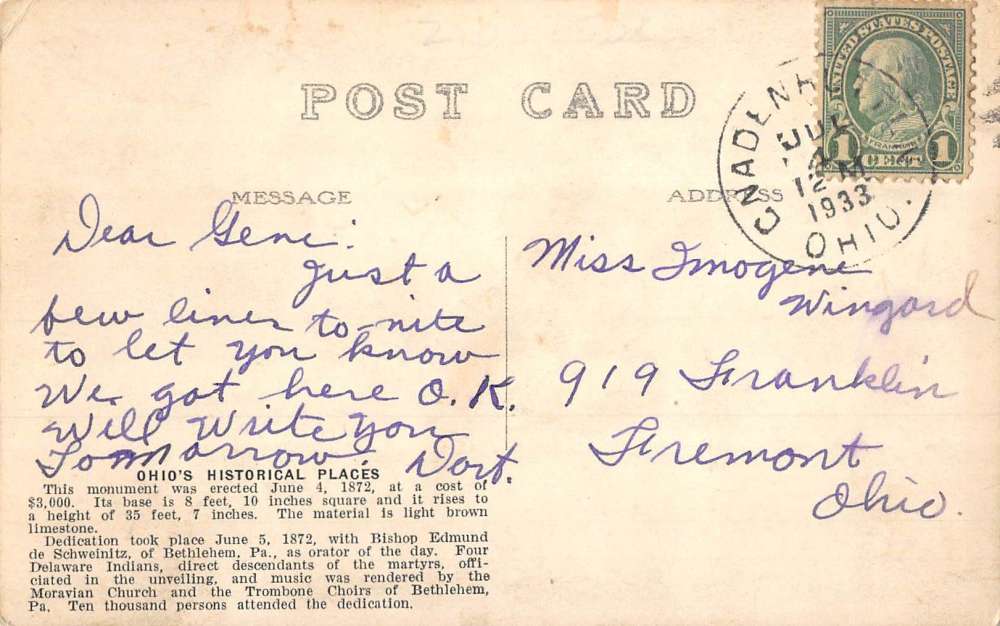 POST CARD
UNITED STATES POSTAGE
FRANKLIN
1 CENT 1
GNADENHUTTEN
JUL
12 M
1933
OHIO.
MESSAGE
ADDRESS
Dear Gene:
Just a
few lines to-nite
to let you know
We got here O.K.
Will Write you
Tommarrow. Dort.
Miss Imogene
Wingard
919 Franklin
Fremont
Ohio.
OHIO'S HISTORICAL PLACES
This monument was erected June 4, 1872, at a cost of
$3,000. Its base is 8 feet, 10 inches square and it rises to
a height of 35 feet, 7 inches. The material is light brown
limestone.
Dedication took place June 5, 1872, with Bishop Edmund
de Schweinitz, of Bethlehem, Pa., as orator of the day. Four
Delaware Indians, direct descendants of the martyrs, offi-
ciated in the unveiling, and music was rendered by the
Moravian Church and the Trombone Choirs of Bethlehem,
Pa. Ten thousand persons attended the dedication.